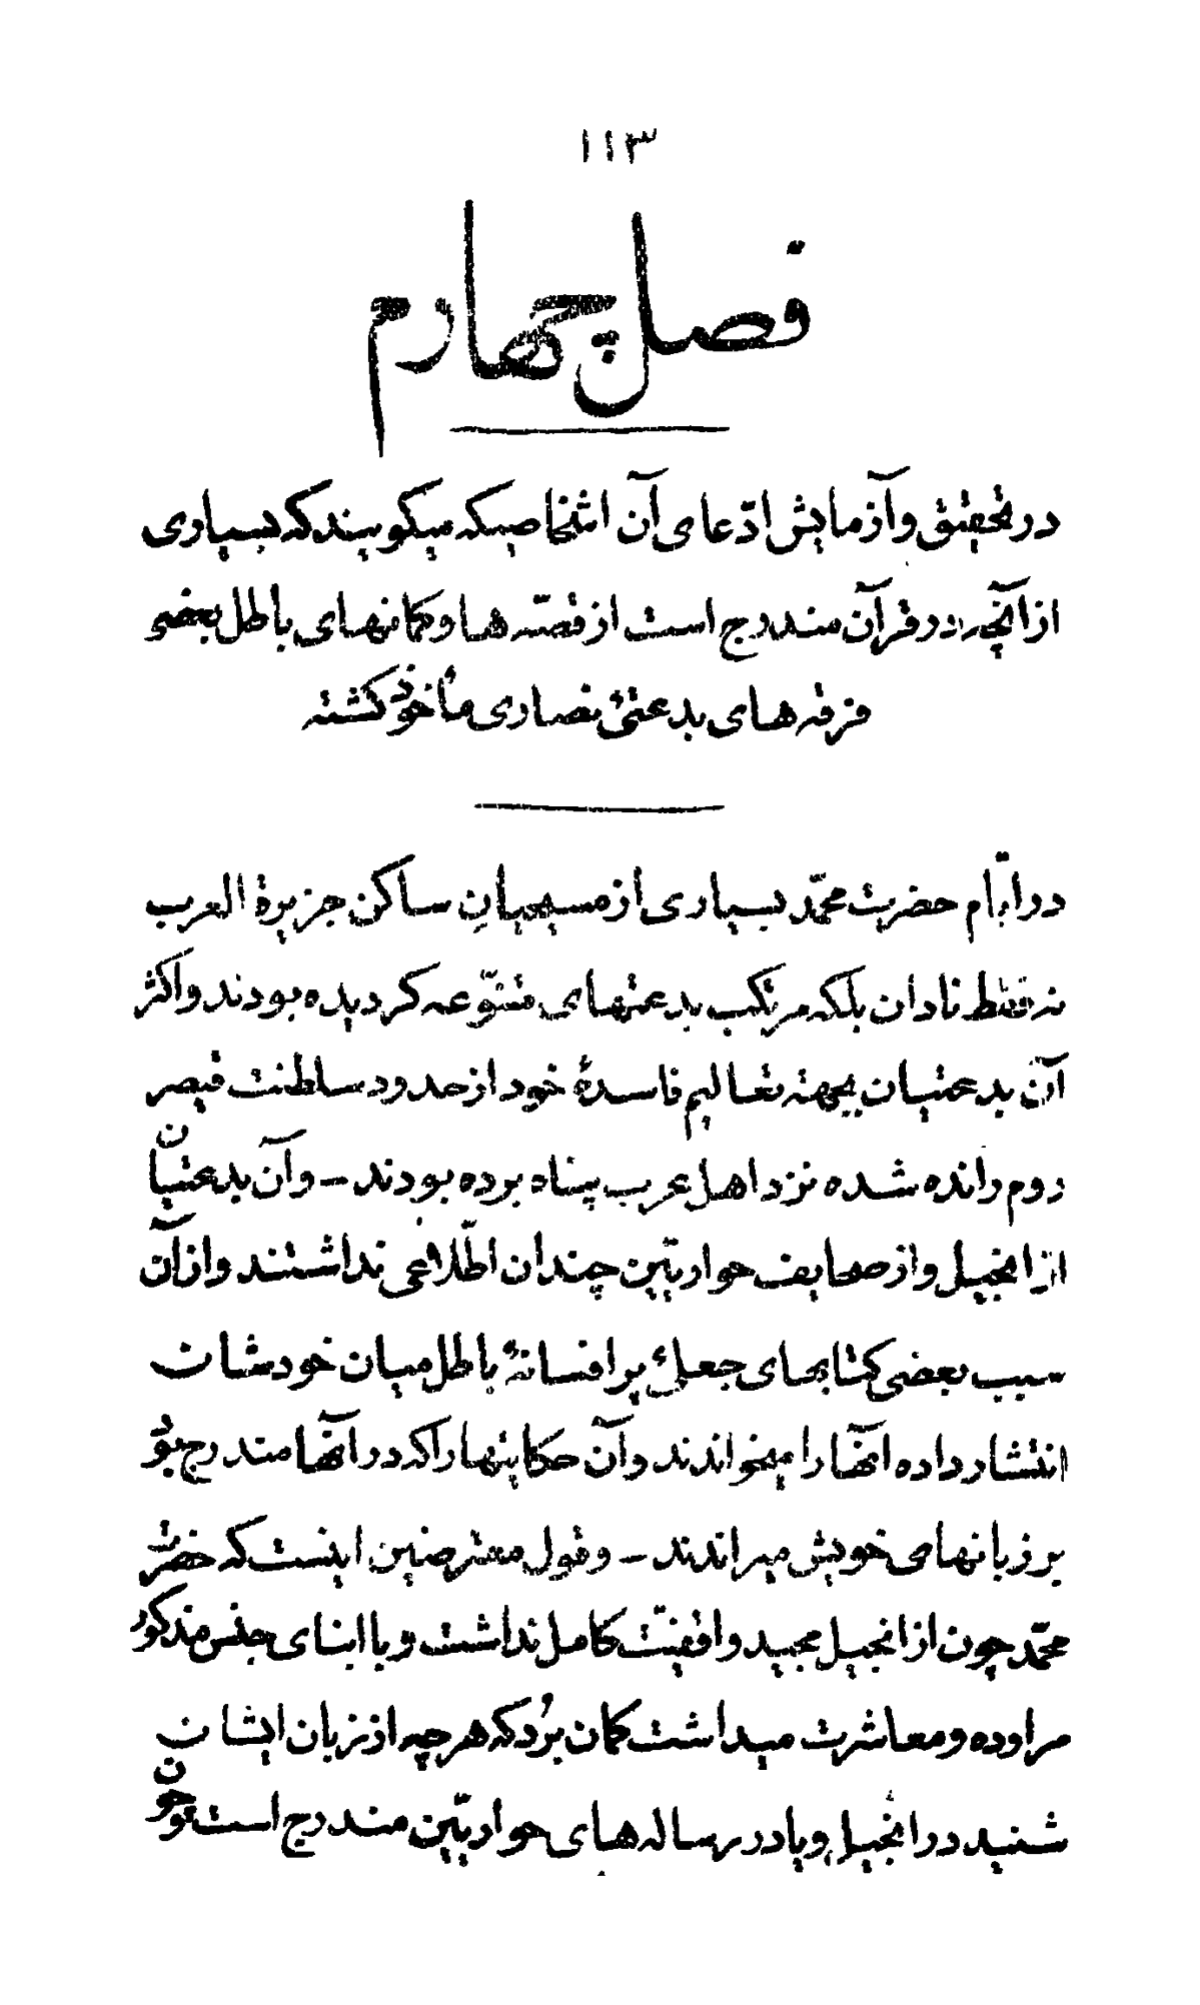 ۱۱۳
فصل چهارم
در تحقیق و آزمایش ادّعای آن اشخاصیکه میگویند که بسیاری
از آنچه در قرآن مندرج است از قصّه ها و گمانهای باطل بعضی
فرقه های بدعتیٔ نصاری مأخوذ گشته
در ایّام حضرت محمّد بسیاری از مسیحیانِ ساکن جزیرة العرب
نه فقط نادان بلکه مرتکب بدعتهای متنوّعه گردیده بودند و اکثر
آن بدعتیان بجهته تعالیم فاسدهٔ خود از حدود سلطنت قیصر
روم رانده شده نزد اهل عرب پناه برده بودند – و آن بدعتیان
از انجیل و از صحایف حواریّین چندان اطّلاعی نداشتند و از آن
سبب بعضی کتابهای جعلیٔ پر افسانهٔ باطل میان خودشان
انتشار داده آنها را میخواندند و آن حکایتها را که در آنها مندرج بود
بر زبانهای خویش میراندند – و قول معترضین اینست که حضرت
محمّد چون از انجیل مجید واقفیّت کامل نداشت و با ابنای جنس مذکور
مراوده و معاشرت میداشت گمان بُرد که هر چه از زبان ایشان
شنید در انجیل و یا در رساله های حواریّین مندرج است و چون